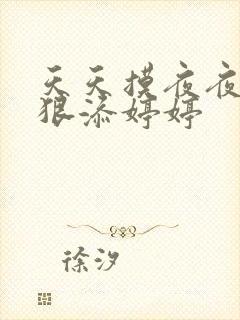 天天摸夜夜
狠添婷婷
徐汐